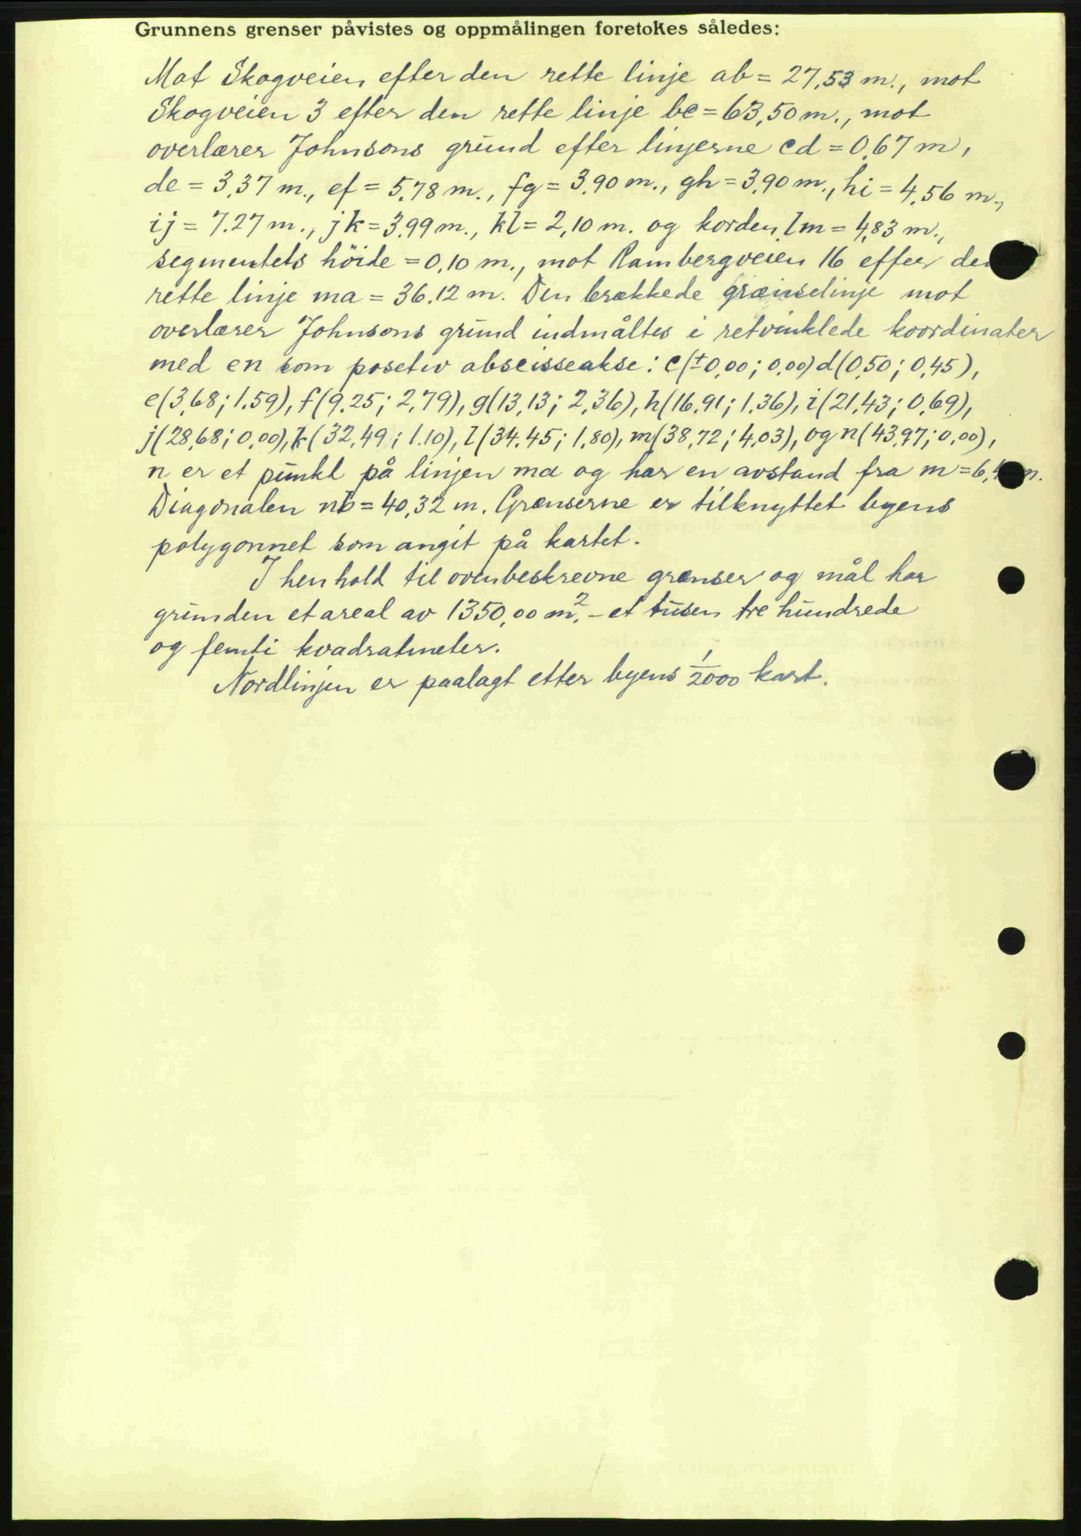 Grunnens grenser påvistes og oppmålingen foretokes således:
Mot Skogveien efter den rette linje ab = 27,53 m., mot
Skogveien 3 efter den rette linje bc = 63,50 m., mot
overlærer Johnsons grund efter linjerne cd = 0,67 m,
de = 3,37 m., ef = 5,78 m., fg = 3,90 m., gh = 3,90 m., hi = 4,56 m.,
ij = 7,27 m., jk = 3,99 m., kl = 2,10 m. og korden lm = 4,83 m.,
segmentets höide = 0,10 m., mot Rambergveien 16 efter den
rette linje ma = 36,12 m. Den brækkede grænselinje mot
overlærer Johnsons grund indmåltes i retvinklede koordinater
med cn som posetiv abscisseakse: c(±0,00; 0,00) d(0,50; 0,45),
e(3,68; 1,59), f(9,25; 2,79), g(13,13; 2,36), h(16,91; 1,36), i(21,43; 0,69),
j(28,68; 0,00), k(32,49; 1,10), l(34,45; 1,80), m(38,72; 4,03), og n(43,97; 0,00),
n er et punkt på linjen ma og har en avstand fra m = 6, m.
Diagonalen nb = 40,32 m. Grænserne er tilknyttet byens
polygonnet som angit på kartet.
I henhold til ovenbeskrevne grænser og mål har
grunden et areal av 1350,00 m². - et tusen tre hundrede
og femti kvadratmeter.
Nordlinjen er paalagt etter byens 1/2000 kart.